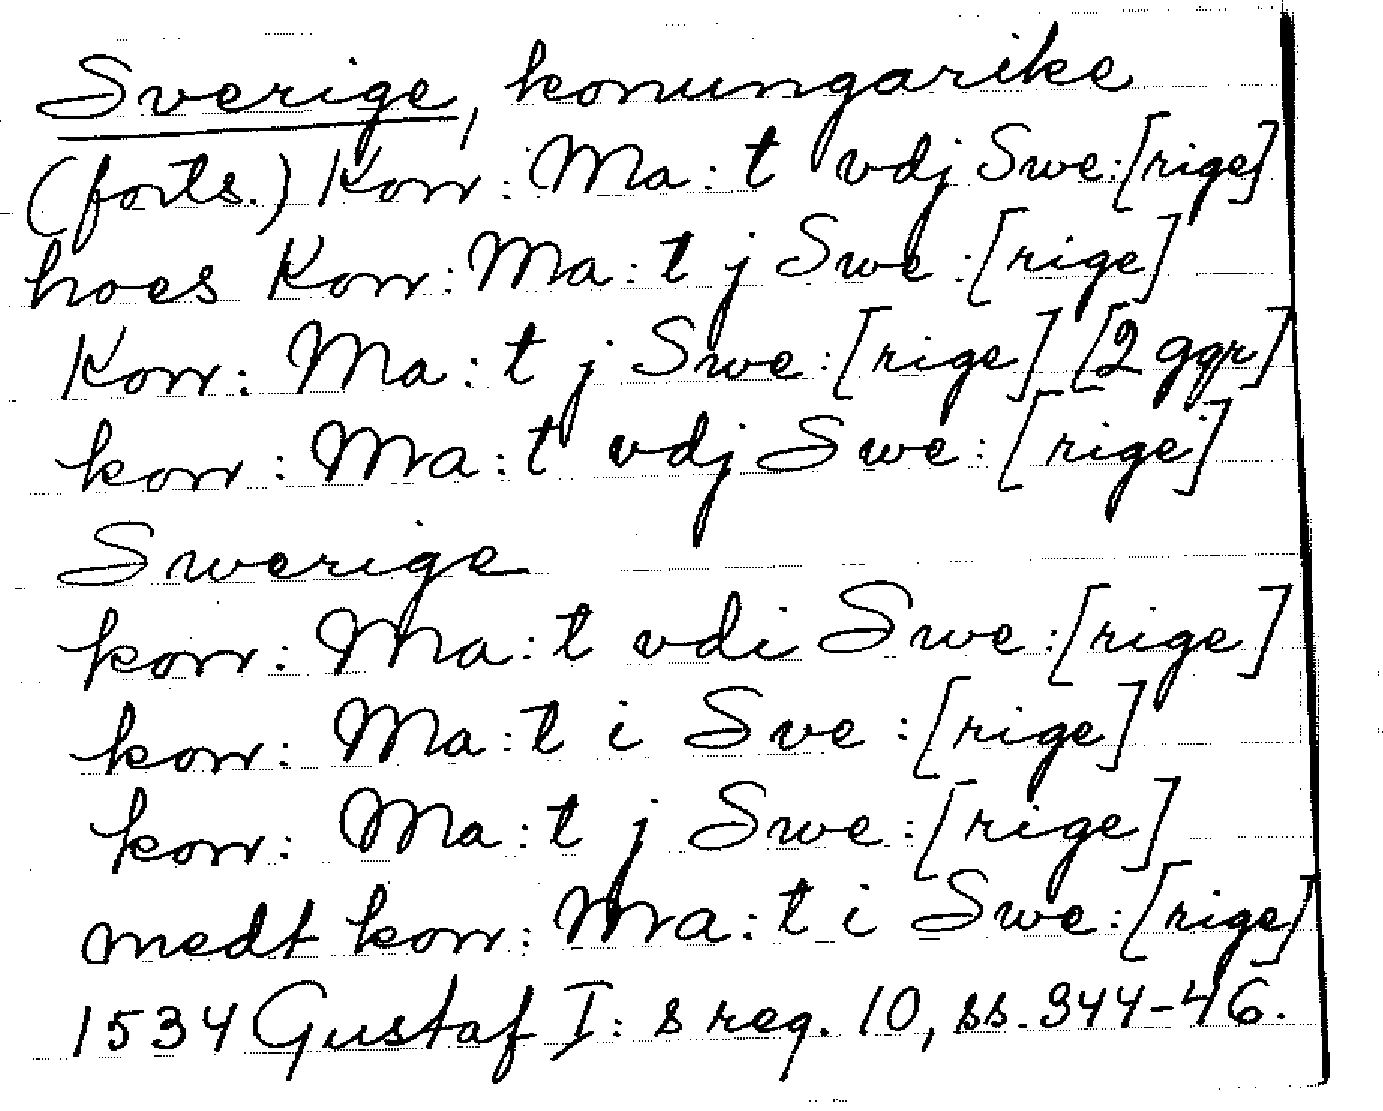 Sverige, konungarike
(forts.) Konr: Ma: t vdj Swe:[rige]
hoes Konr: Ma: t j Swe:[rige]
Konr: Ma: t j Swe:[rige] [2 ggr]
konr: Ma: t vdj Swe:[rige]
Swerige
konr: Ma: t vdi Swe:[rige]
konr: Ma: t i Sve:[rige]
konr: Ma: t j Swe:[rige]
medt konr: Ma: t i Swe:[rige]
1534 Gustaf I: s reg. 10, ss. 344-46.